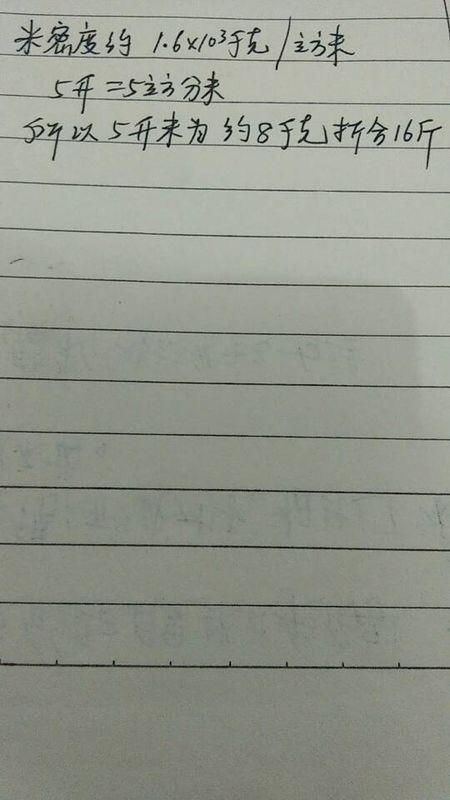 米密度约 1.6×10³千克/立方米
5升=5立方分米
所以5升米为约8千克折合16斤